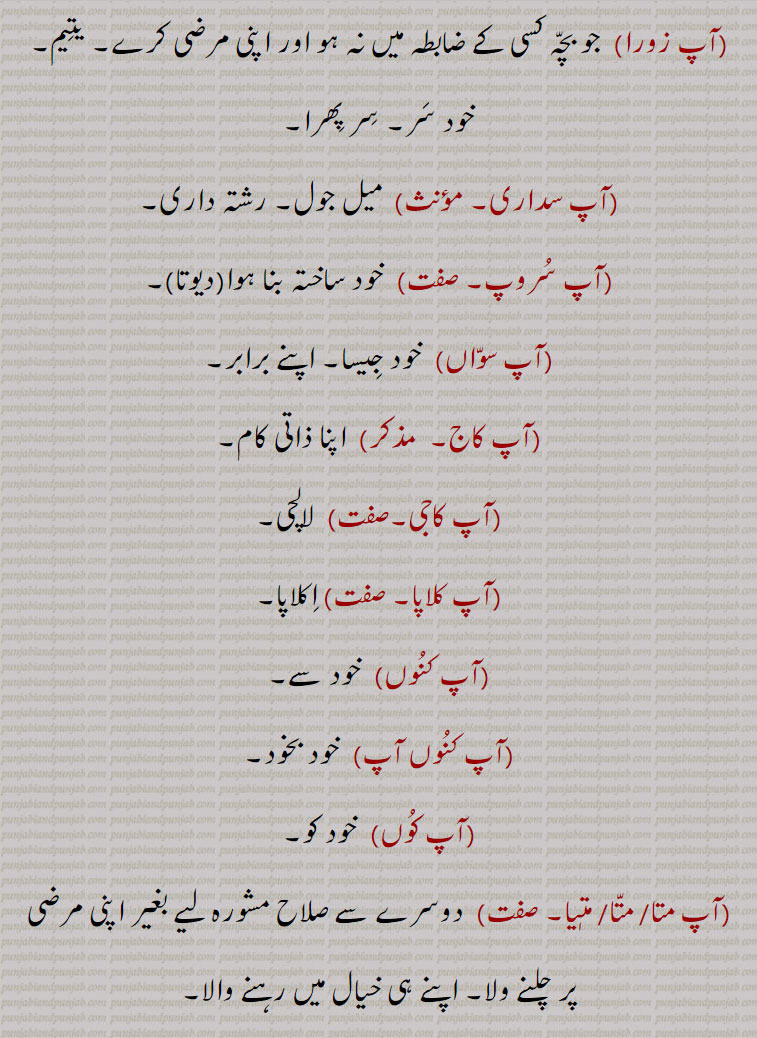 (آپ زورا) جو بچّہ کسی کے ضابطہ میں نہ ہو اور اپنی مرضی کرے۔ یتیم۔
خود سَر۔ سِر پِھرا۔
(آپ سداری۔ مؤنث) میل جول۔ رشتہ داری۔
(آپ سُروپ۔ صفت) خود ساختہ بنا ہوا(دیوتا)۔
(آپ سوّاں) خود جِیسا۔ اپنے برابر۔
(آپ کاج۔ مذکر) اپنا ذاتی کام۔
(آپ کاجی۔صفت) لالچی۔
(آپ کلاپا۔ صفت) اِکلاپا۔
(آپ کنُوں) خود سے۔
(آپ کنُوں آپ) خود بخود۔
(آپ کُوں) خود کو۔
(آپ متا/ متّا/ متِیا۔ صفت) دوسرے سے صلاح مشورہ لیے بغیر اپنی مرضی
پر چلنے ولا۔ اپنے ہی خیال میں رہنے والا۔